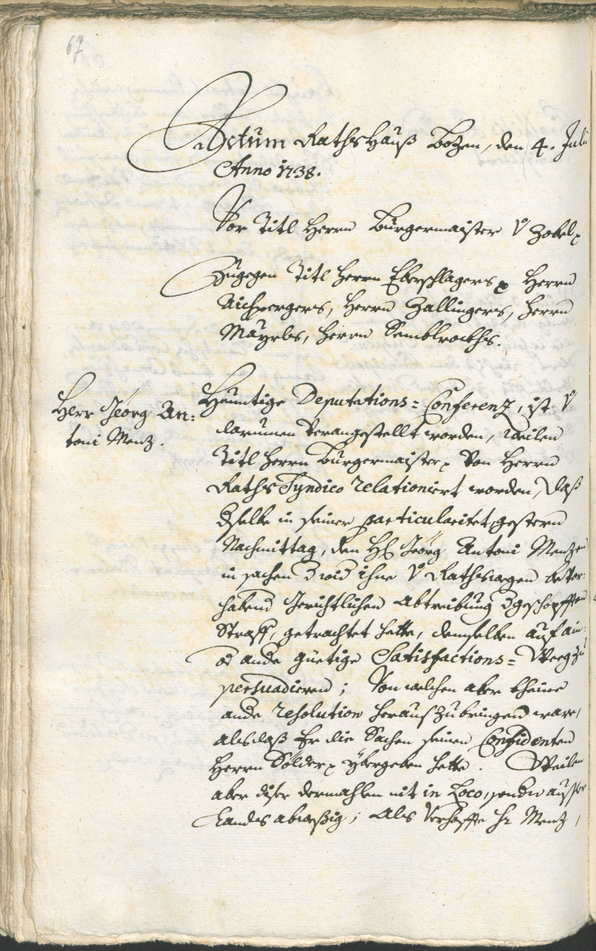 67
Actum RathsHauß Bozen, den 4. Juli
Anno 1738.
Vor Titl Herrn Burgermaister v Zobel
Zugegen Titl Herrn Eberschlagers Herrn
Aichpergers, Herrn Zallingers, Herrn
Mayrls, Herrn Semblrocks.
Herr Georg An=
toni Menz.
Heuntige Deputations=Conferenz, ist
darumen veranstellt worden, Weilen
Titl Herrn Burgermaister von Herrn
Raths Syndico relationiert worden, daß
dselbe in seiner particularitet gestern
Nachmittag, den H Georg Antoni Menzen
in sachen wid ihne v Rathswegen bevor=
habend Gerichtlichen Abtreibung dgeschöpfften
Straff, getrachtet hette, demselben auf ain=
od ande güetige Satisfactions=Weeg zu
persuadieren; Von welchen aber kheine
ande resolution herauszubringen ware,
als daß Er die Sachen seinen Confidenten
Herrn Sölder ybergeben hette. Weilen
aber diser dermahlen nit in Loco, sondern ausser
Landes abwesig; Als verhoffe H Menz,